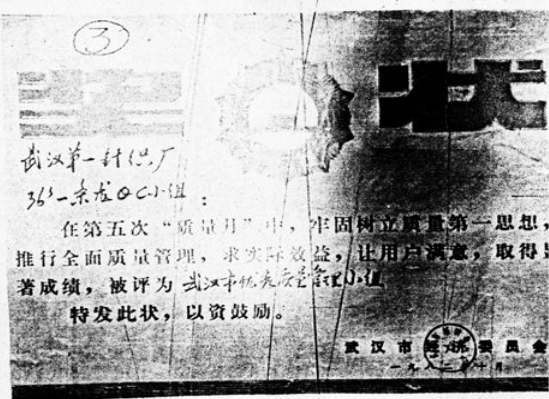 ③
奖状
武汉第一针织厂
365一条龙QC小组：
在第五次“质量月”中，牢固树立质量第一思想，
推行全面质量管理，求实际效益，让用户满意，取得显
著成绩，被评为武汉市优秀质量管理小组
特发此状，以资鼓励。
武汉市经济委员会
一九八二年十月